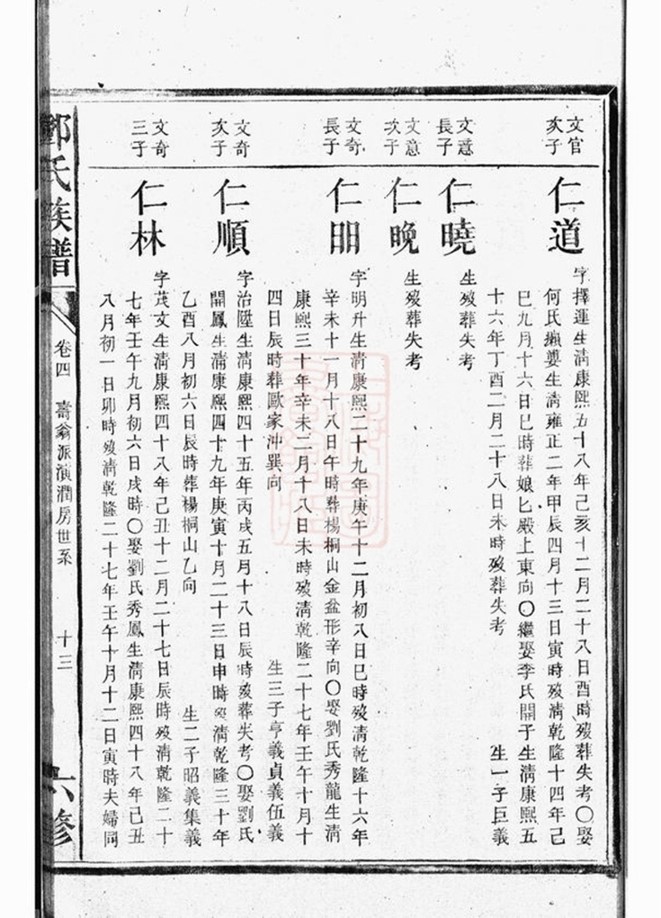 文官次子
仁道
字擇運生清康熙五十八年己亥十二月二十八日酉時歿葬失考〇娶
何氏繼娶生清雍正二年甲辰四月十三日寅時歿清乾隆十四年己
巳九月十六日巳時葬娘匕嚴上東向〇繼娶李氏開子生清康熙五
十六年丁酉二月二十八日未時歿葬失考 生一子巨義
文意長子
仁曉
生歿葬失考
文意次子
仁晚
生歿葬失考
文奇長子
仁明
字明升生清康熙二十九年庚午十二月初八日巳時歿清乾隆十六年
辛未十一月十八日午時葬楊桐山金盆形辛向〇娶劉氏秀龍生清
康熙三十年辛未二月十八日未時歿清乾隆二十七年壬午十月十
四日辰時葬歐家沖巽向 生三子亨義貞義伍義
文奇次子
仁順
字治陞生清康熙四十五年丙戌五月十八日辰時歿葬失考〇娶劉氏
開鳳生清康熙四十九年庚寅十月二十三日申時歿清乾隆三十年
乙酉八月初六日辰時葬楊桐山乙向 生二子昭義集義
文奇三子
仁林
字茂文生清康熙四十八年己丑十二月二十七日辰時歿清乾隆二十
七年壬午九月初六日戌時〇娶劉氏秀鳳生清康熙四十八年己丑
八月初一日卯時歿清乾隆二十七年壬午十月十二日寅時夫婦同
鄧氏族譜
卷四 壽翁派演潤房世系 十三
六修